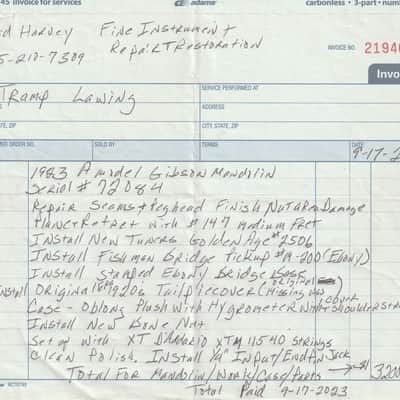 45 Invoice for Services
adams
carbonless • 3-part • num
Harvey Fine Instrument
Repair & Restoration
5-210-7309
INVOICE NO. 2194
Invo
Tramp Lawing
SERVICE PERFORMED AT
ADDRESS
ADDRESS
STATE, ZIP
CITY, STATE, ZIP
ORDER NO.
SOLD BY
TERMS
DATE
9-17-2
1983 A model Gibson Mandolin
Serial # 72084
Repair Seams & Peghead Finish Nut Area Damage
Plane & Refret with #147 medium Fret
Install New Tuners Golden Age #2506
Install Fishman Bridge Pickup #M-200 (Ebony)
Install Standed Ebony Bridge Base
Install Original 1920s Tailpiece cover (original missing cover
Case - Oblong Plush with Hygrometer with shoulder stra
Install New Bone Nut
Set up with XT D'Addario XTM 11540 Strings
Clean Polish. Install ¼" Input/Endpin Jack
Total For Mandolin/Work/Case/Parts → $ 3200
Total Paid 9-17-2023